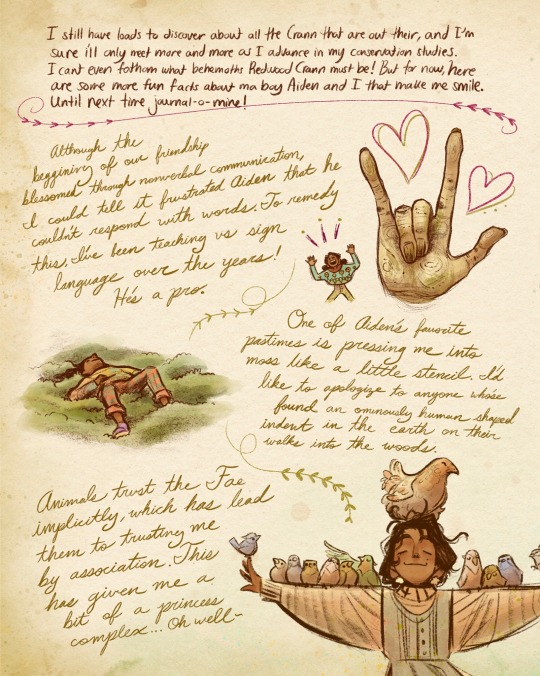 I still have loads to discover about all the Crann that are out their, and I'm
sure i'll only meet more and more as I advance in my conservation studies.
I cant even fathom what behemoths Redwood Crann must be! But for now, here
are some more fun facts about ma boy Aiden and I that make me smile.
Until next time journal-o-mine!
Although the
beggining of our friendship
blessomed through nonverbal communication,
I could tell it frustrated Aiden that he
couldn't respond with words. To remedy
this, I've been teaching us sign
language over the years!
He's a pro.
One of Aiden's favorite
pastimes is pressing me into
moss like a little stencil. I'd
like to apologize to anyone whose
found an ominously human shaped
indent in the earth on their
walks into the woods.
Animals trust the Fae
implicitly, which has lead
them to trusting me
by association. This
has given me a
bit of a princess
complex... Oh well~